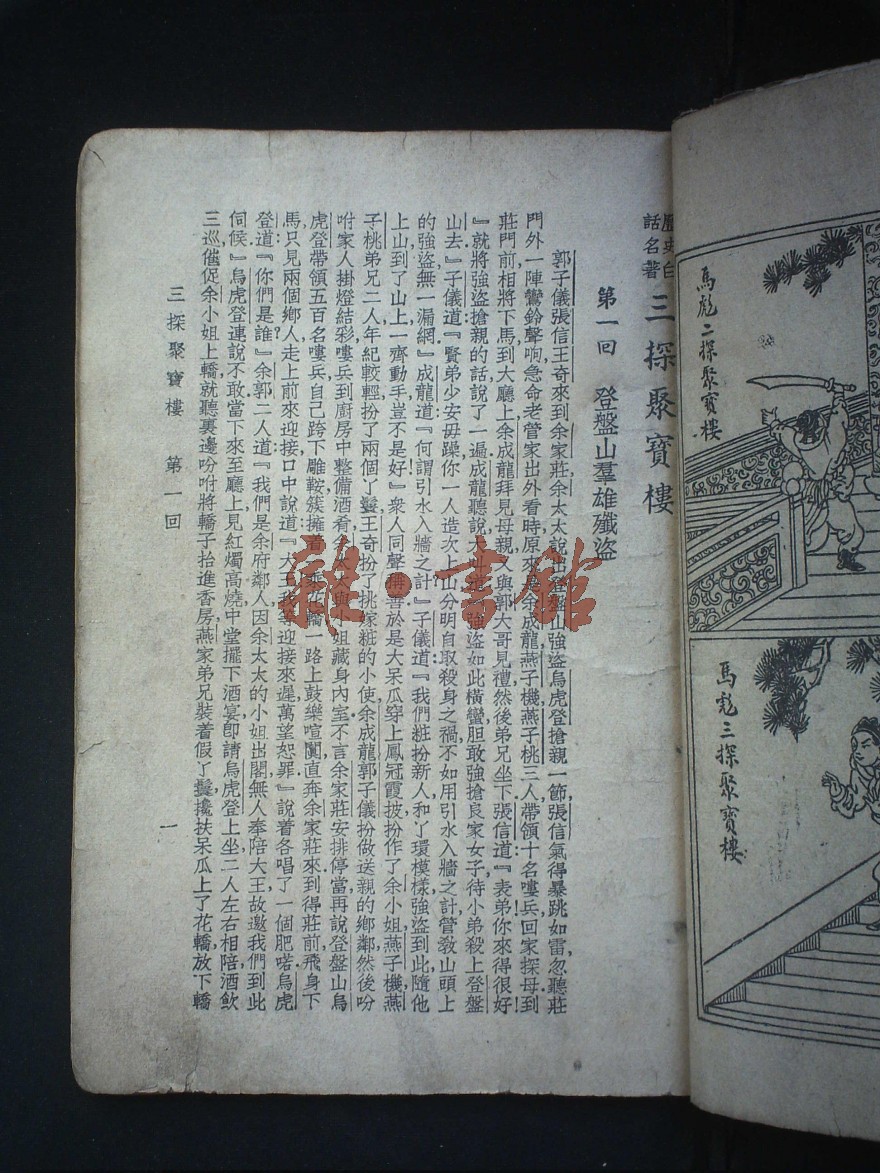 歷史白話名著 三探聚寶樓
第一回 登盤山羣雄殲盜
郭子儀張信王奇來到余家莊,余太太說出登盤山強盜烏虎登搶親一節,張信氣得暴跳如雷,忽聽莊
門外一陣鸞鈴聲响,急命老管家出外看時,原來是余成龍燕子機燕子桃三人,帶領十名嘍兵,回家探母,到
莊門前相將下馬,到大廳上,余成龍拜見母親,又與郭大哥見禮,然後弟兄坐下,張信道:『表弟你來得很好!
』就將強盜搶親的話說了一遍,成龍聽說大道『強盜如此橫蠻,胆敢強搶良家女子,待小弟殺上登盤
山去』子儀道:『賢弟少安毋躁,你一人造次上山,分明自取殺身之禍,不如用引水入牆之計,管敎山頭上
的強盜無一漏網』成龍道:『何謂引水入牆之計』子儀道:『我們粧扮新人和丫環模樣,強盜到此,隨他
上山,到了山上,一齊動手,豈不是好!』衆人同聲稱善,於是大呆瓜穿上鳳冠霞披,扮作了余小姐,燕子機燕
子桃弟兄二人年紀較輕,扮了兩個丫鬟,王奇扮了挑家粧的小使,余成龍郭子儀扮做送親的鄉鄰,然後吩
咐家人掛燈結彩,嘍兵到廚房中整備酒肴,余太太與小姐藏身內室,不言余家莊安排停當,再說登盤山烏
虎登,帶領五百名嘍兵,自己跨下雕鞍,簇擁着一乘花轎,一路上鼓樂喧闐,直奔余家莊來,到得莊前,飛身下
馬,只見兩個鄉人走上前來,迎接口中說道:『大王我等迎接來遲,萬望恕罪』說着各唱了一個肥喏,烏虎
登道:『你們是誰?』余郭二人道:『我們是余府鄰人,因余太太的小姐出閣,無人奉陪大王,故邀我們到此
伺候』烏虎登連說不敢,當下來至廳上,見紅燭高燒,中堂擺下酒宴,卽請烏虎登上坐,二人左右相陪,酒飲
三巡,催促余小姐上轎,就聽裏邊吩咐將轎子抬進香房,燕家弟兄裝着假丫鬟,攙扶呆瓜上了花轎,放下轎
三探聚寶樓 第一回 一
馬彪二探聚寶樓
馬彪三探聚寶樓
雜·書館